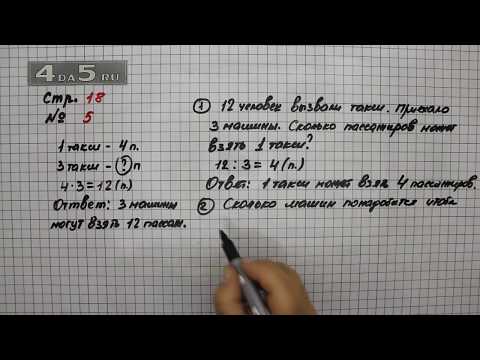 4DA5.RU
Стр. 18
№ 5
1 такси - 4 п.
3 такси - ? п
4·3=12(п.)
Ответ: 3 машины
могут взять 12 пассаж.
1 12 человек вызвали такси. Приехало
3 машины. Сколько пассажиров может
взять 1 такси?
12:3=4(п.)
Ответ: 1 такси может взять 4 пассажиров.
2 Сколько машин понадобится чтобы